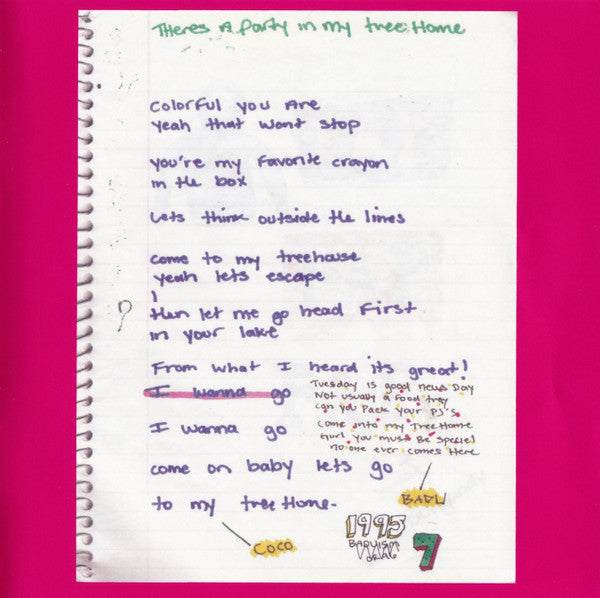 THeres A Party in my tree Home
colorful you Are
yeah that wont stop
you're my favorite crayon
in the box
Lets think outside the lines
come to my treehouse
yeah lets escape
?
then let me go head first
in your lake
From what I heard its great!
I wanna go
I wanna go
come on baby lets go
to my tree Home.
COCO
Tuesday is good news Day
Not usually a food tray
can you Pack your PJ's
Come into my Tree Home
Gurl you must Be special
no one ever comes Here
BADU
1993
BADUISM
7